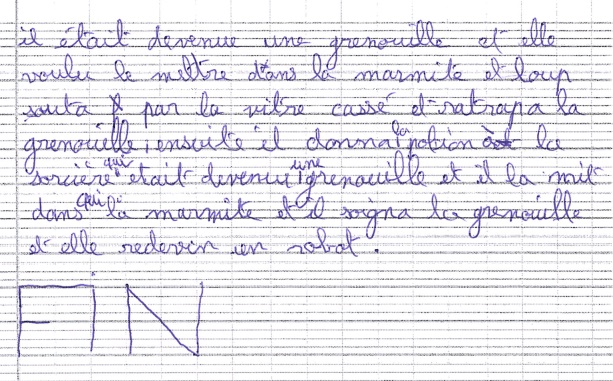 il était devenue une grenouille et elle
voulu le mettre dans la marmite et loup
sauta par la vitre cassé et ratrapa la
grenouille, ensuite il donna la potion à la
sorcière qui était devenu une grenouille et il la mit
dans la marmite et il soigna la grenouille
et elle redevin un robot.
FIN